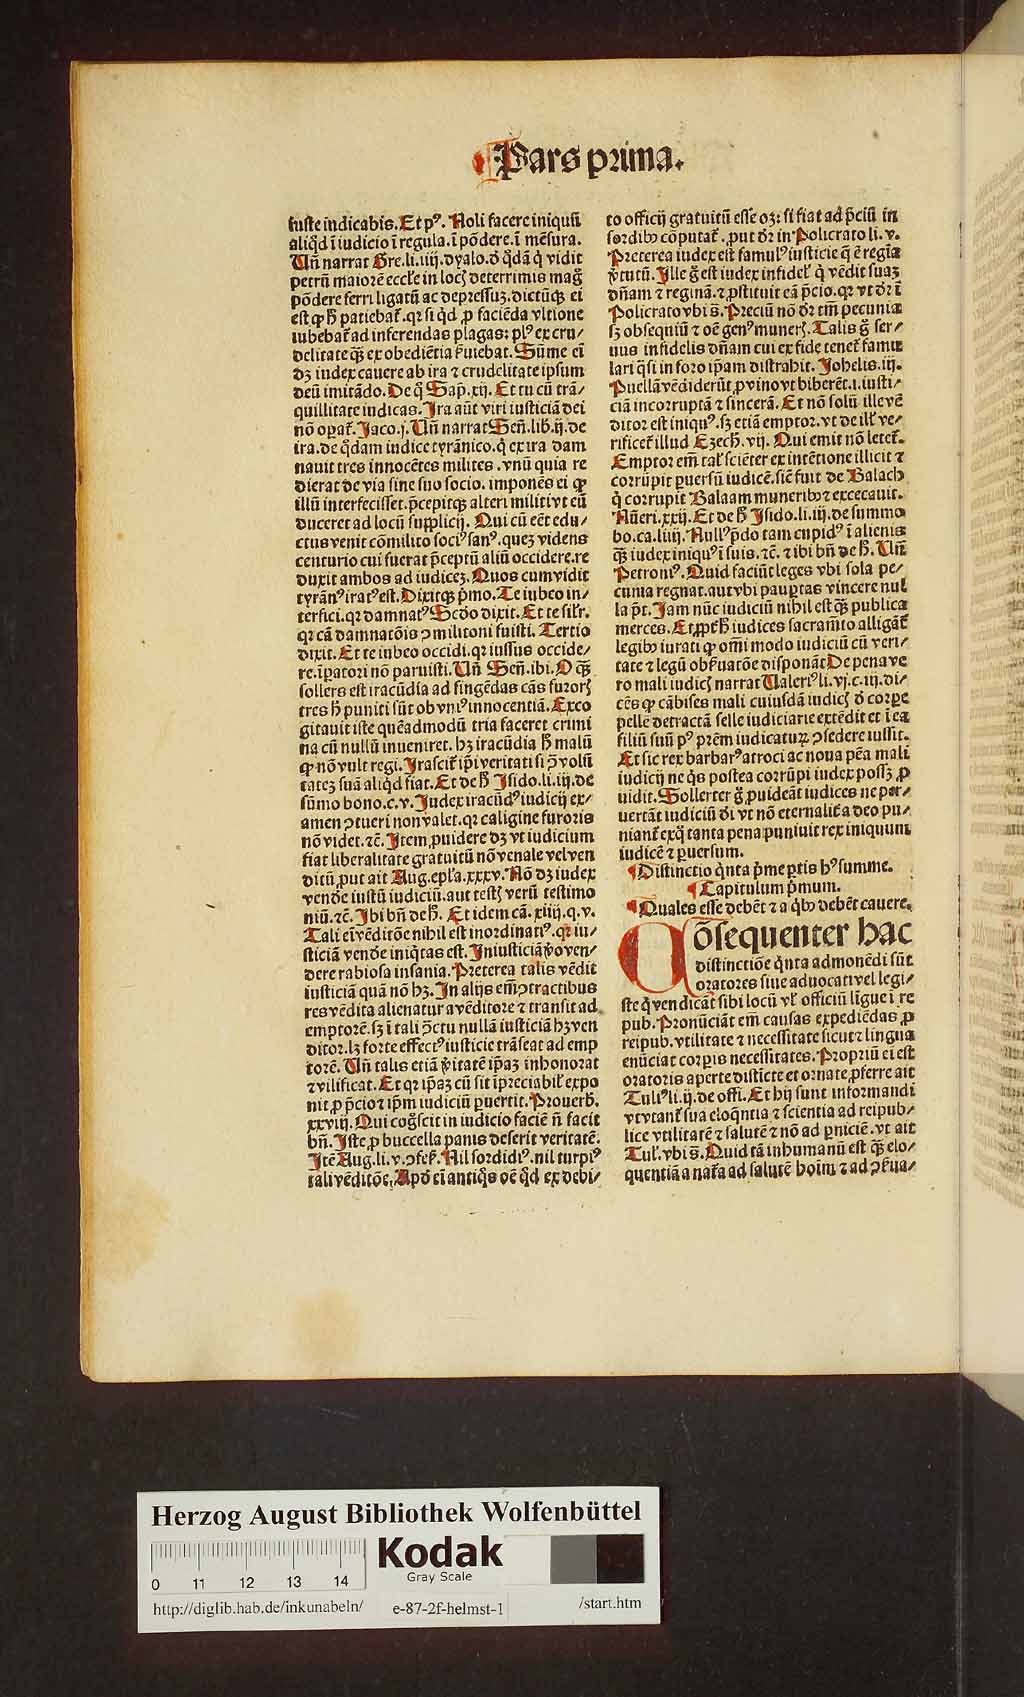 Pars prima.
iuste iudicabis. Et pꝰ. Noli facere iniquū
aliqͥd ī iudicio ī regula. ī pōdere. ī mēsura.
Vn̄ narrat Gre. li. iiij. dyalo. ꝺ qͥdā qͥ vidit
petrū maiorē eccl̄e in locꝭ deterrimis mag̃
pōdere ferri ligatū ac depressuꝫ. dictūqꝫ ei
est ꝙ h̄ patiebat̄. qꝛ si qͥd ꝓ faciēda vltione
iubebat̄ ad inferendas plagas: plꝰ ex cru/
delitate qꝫ̄ ex obediētia ẜuiebat. Sūme eī
dꝫ iudex cauere ab ira ⁊ crudelitate ipsum
deū imitādo. De q̄ Sap̄. xij. Et tu cū trā/
quillitate iudicas. Ira aūt viri iusticiā dei
nō oꝑat̄. Jaco. j. Vn̄ narrat Sen̄. lib. ij. de
ira. de qͦdam iudice tyrānico. qͥ ex ira dam
nauit tres innocētes milites. vnū quia re
dierat de via sine suo socio. imponēs ei ꝙ
illū interfecisset. p̄cepitqꝫ alteri militi vt eū
duceret ad locū supplicij. Qui cū eēt edu/
ctus venit cōmilito sociꝰ sanꝰ. queꝫ videns
centurio cui fuerat p̄ceptū aliū occidere. re
duxit ambos ad iudiceꝫ. Quos cum vidit
tyrānꝰ iratꝰ est. Dixitqꝫ p̄mo. Te iubeo in/
terfici. qꝛ damnatꝰ. Scd̄o dixit. Et te sil̄r.
qꝛ cā damnatōis ꝯmilitoni fuisti. Tertio
dixit. Et te iubeo occidi. qꝛ iussus occide/
re. īꝑatori nō paruisti. Vn̄ Sen̄. ibi. O qꝫ̄
sollers est iracūdia ad fingēdas cās furorꝭ
tres h̄ puniti sūt ob vniꝰ innocentiā. Exco
gitauit iste quēadmodū tria faceret crimi
na cū nullū inueniret. hꝫ iracūdia h̄ malū
ꝙ nō vult regi. Irascit̄ ip̄i veritati si p̄ volū
tateꝫ suā aliqͥd fiat. Et de h̄ Isido. li. iij. de
sūmo bono. c. v. Iudex iracūdꝰ iudicij ex/
amen ꝯtueri non valet. qꝛ caligine furoris
nō videt. ⁊c̄. Item ꝓuidere dꝫ vt iudicium
fiat liberalitate gratuitū nō venale vel ven
ditū put ait Aug. epl̄a. xxxv. Nō dꝫ iudex
vendē iustū iudiciū. aut testꝭ verū testimo
niū. ⁊c̄. Ibi bn̄ de h̄. Et idem cā. xiiij. q. v.
Tali eī vēditōe nihil est inordinatiꝰ. qꝛ iu/
sticiā vendē iniqͥtas est. Iniusticiā ꝟo ven/
dere rabiosa insania. Preterea talis vēdit
iusticiā quā nō hꝫ. In alijs em̄ ꝯtractibus
res vēdita alienatur a vēditore ⁊ transit ad
emptorē. sꝫ ī tali ꝯctu nullā iusticiā hꝫ ven
ditor. lꝫ forte effectꝰ iusticie trāseat ad emp
torē. Vn̄ talis etiā ꝟitatē ip̄aꝫ inhonorat
⁊ vilificat. Et qꝛ ip̄aꝫ cū sit īpreciabil̄ expo
nit ꝓ p̄cio ⁊ ip̄m iudiciū ꝑuertit. Prouerb̄.
xxviij. Qui cog̃scit in iudicio faciē n̄ facit
bn̄. Iste ꝓ buccella panis deserit veritatē.
Itē Aug. li. v. ꝯfes̄. Nil sordidiꝰ. nil turpiꝰ
tali vēditōe. Apd̄ eī antiqͦs oē qͥd ex debi/
to officij gratuitū esse oꝫ: si fiat ad p̄ciū in
sordibꝰ cōputat̄. put dr̄ in Policrato li. v.
Preterea iudex est famulꝰ iusticie q̄ ē regīa
ꝟtutū. Ille g̊ est iudex infidel̄ qͥ vēdit suaꝫ
dn̄am ⁊ reginā. ⁊ ꝓstituit eā p̄cio. qꝛ vt dr̄ ī
Policrato vbi s̄. Preciū nō dr̄ tm̄ pecunia
sꝫ obsequiū ⁊ oē genꝰ munerꝭ. Talis g̊ ser/
uus infidelis dn̄am cui ex fide tenet̄ famu
lari qͣsi in foro ip̄am distrahit. Johelis. iij.
Puellā vēdiderūt ꝓ vino vt biberēt. i. iusti/
ciā incorruptā ⁊ sincerā. Et nō solū ille vē
ditor est iniquꝰ. sꝫ etiā emptor. vt de ill̄ ve/
rificet̄ illud Ezech̄. vij. Qui emit nō letet̄.
Emptor em̄ tal̄ sciēter ex intētione illicit ⁊
corrūpit ꝑuersū iudicē. sic̄ fuit de Balach
qͥ corrupit Balaam muneribꝰ ⁊ excecauit.
Nūeri. xxij. Et de h̄ Isido. li. iij. de summo
bo. ca. liiij. Nullꝰ p̄do tam cupidꝰ ī alienis
qꝫ̄ iudex iniquꝰ ī suis. ⁊c̄. ⁊ ibi bn̄ de h̄. Vn̄
Petroniꝰ. Quid faciūt leges vbi sola pe/
cunia regnat. aut vbi pauꝑtas vincere nul
la p̄t. Iam nūc iudiciū nihil est qꝫ̄ publica
merces. Et ꝓpt̄ h̄ iudices sacram̄to alligāt̄
legibꝰ iurati ꝙ omī modo iudiciū cū veri/
tate ⁊ legū obẜuatōe disponāt. De pena ve
ro mali iudicꝭ narrat Valeriꝰ li. vj. c. iij. di/
cēs ꝙ cābises mali cuiusdā iudicꝭ ꝺ corpe
pellē detractā selle iudiciarie extēdit et ī ea
filiū suū pꝰ prēm iudicaturꝫ ꝯsedere iussit.
Et sic rex barbarꝰ atroci ac noua pēa mali
iudicij ne qͥs postea corrūpi iudex possꝫ ꝓ
uidit. Sollerter g̊ ꝓuideāt iudices ne per/
uertāt iudiciū dī vt nō eternalit̄ a deo pu/
niant̄ ex qͦ tanta pena puniuit rex iniquum
iudicē ⁊ ꝑuersum.
¶ Distinctio qͥnta p̄me ꝑtis hꝰ summe.
¶ Capitulum p̄mum.
¶ Quales esse debēt ⁊ a qͥbꝰ debēt cauere.
Cōsequenter hac
distinctiōe qͥnta admonēdi sūt
oratores siue aduocati vel legi/
ste qͥ vendicāt sibi locū vl̄ officiū lingue ī re
pub. Pronūciāt em̄ causas expediēdas ꝓ
reipub. vtilitate ⁊ necessitate sicut ⁊ lingua
enūciat corꝑis necessitates. Propriū ei est
oratoris aperte distīcte et ornate ꝓferre ait
Tuliꝰ li. ij. de offi. Et hij sunt informandi
vt vtant̄ sua eloqͥntia ⁊ scientia ad reipub/
lice vtilitatē ⁊ salutē ⁊ nō ad ꝑniciē. vt ait
Tul̄. vbi s̄. Quid tā inhumanū est qꝫ̄ elo/
quentiā a nat̄a ad salutē hoīm ⁊ ad ꝯẜua/
Herzog August Bibliothek Wolfenbüttel
Kodak
Gray Scale
0 11 12 13 14
http://diglib.hab.de/inkunabeln/ e-87-2f-helmst-1 /start.htm